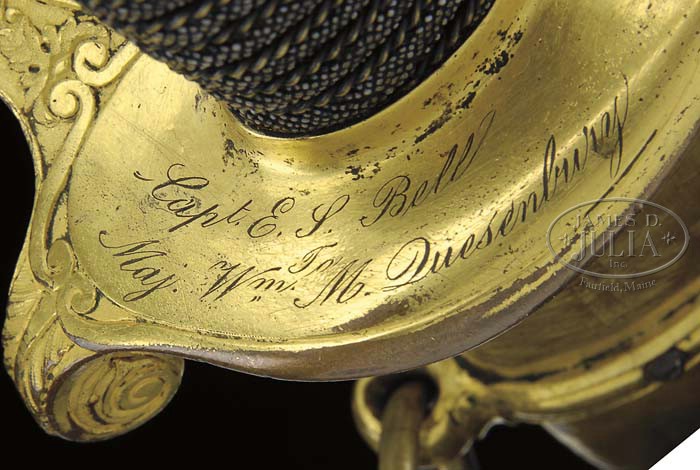 Capt. E. S. Bell
To
Maj. Wm. M. Quesenbury
JAMES D.
JULIA
Inc.
Fairfield, Maine